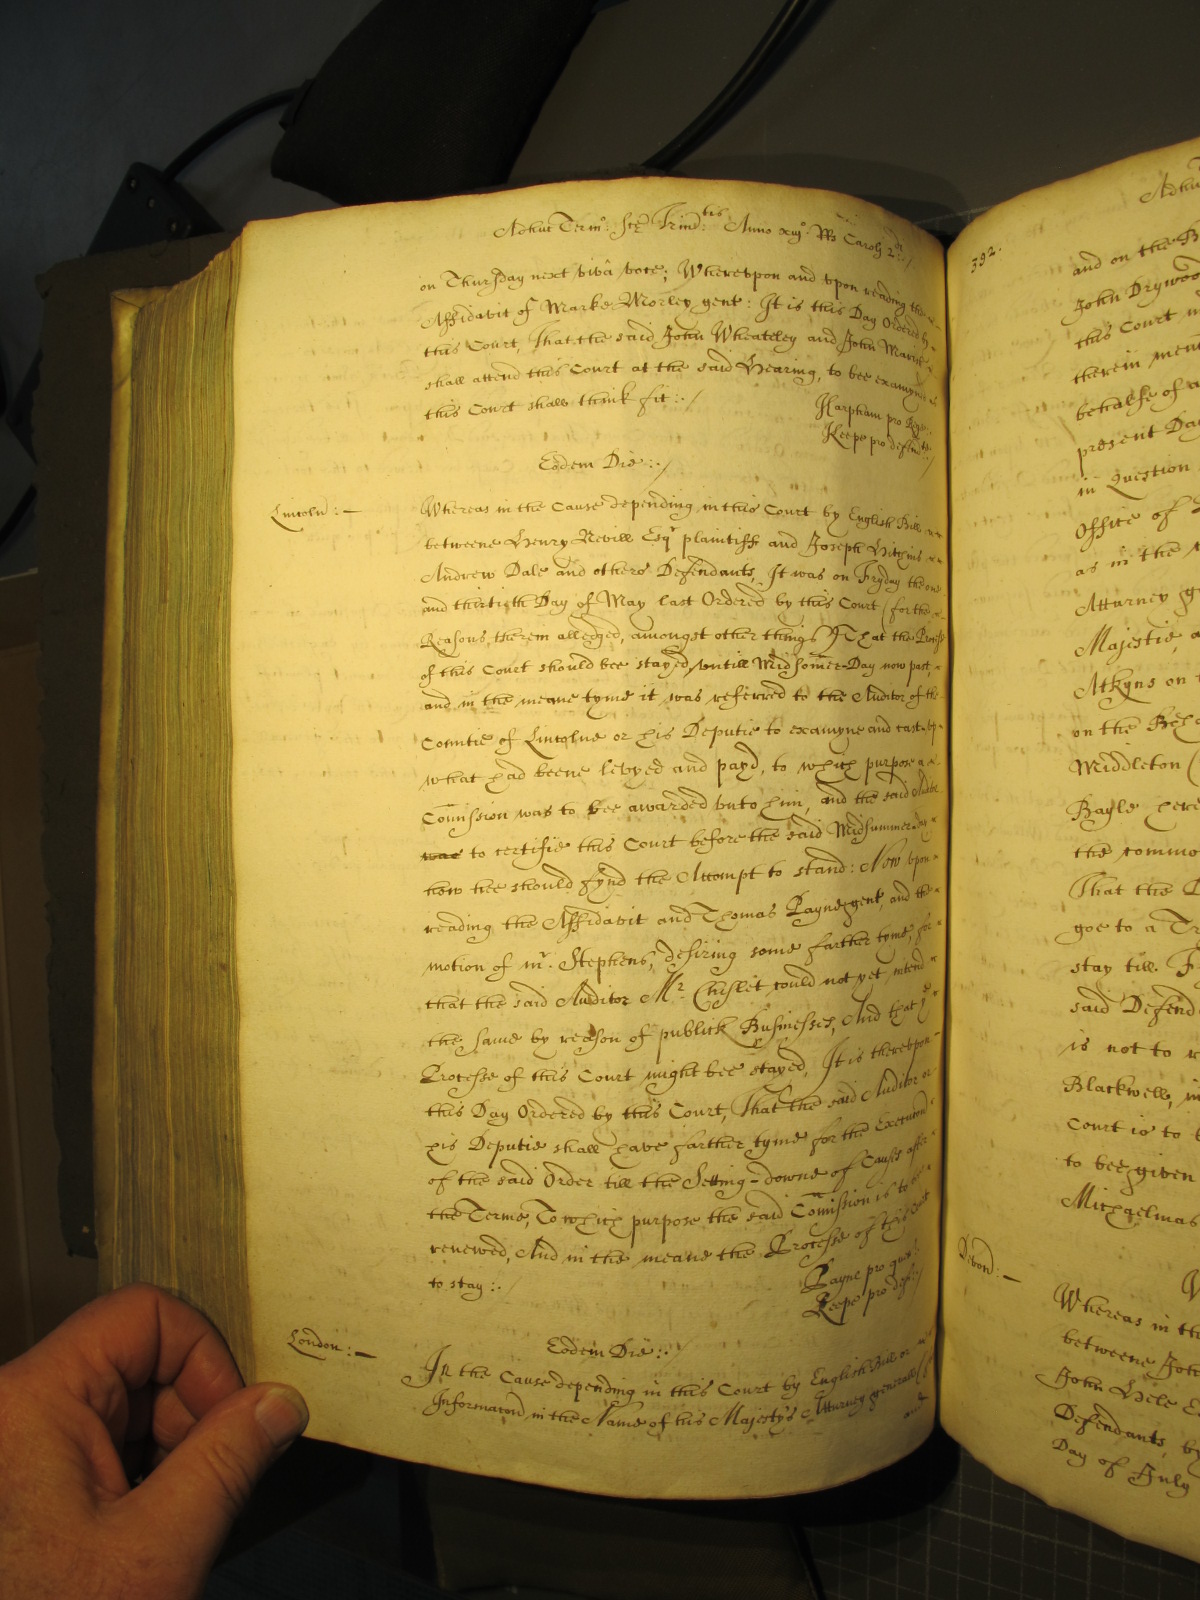 Adhuc Term⁰: Scē Trind:tis Anno xiij⁰. Rs Caroli 2di:/
on Thursday next vivâ voce; Wherevpon and vpon reading the
Affidavit of Marke Morley gent: It is this Day Ordered by
this Court, That the said John Wheateley and John
shall attend this Court at the said Hearing, to bee examyned as
this Court shall think fit:./
Harpham pro
Keepe pro defend:tes:/
Eodem Die:./
Lincoln:—
Whereas in the Cause depending in this Court by English Bill
betweene Henry Nevill Esqr plaintiff and Joseph Hitchins
Andrew Dale and others Defendants, It was on Fryday the one
and thirtieth Day of May last Ordered by this Court (for the
Reasons therein alledged, amongst other things) That the Process
of this Court should bee stayed vntill Midsomer-Day now past,
and in the meane tyme it was referred to the Auditor of the
Countie of Lincolne or his Deputie to examyne and cast vp
what had beene levyed and payd, to which purpose a
Comission was to bee awarded vnto him, and the said Auditor
was to certifie this Court before the said Midsummer-day
how hee should fynd the Accompt to stand: Now vpon
reading the Affidavit and Thomas Payne gent, and the
motion of mr. Stephens, desiring some farther tyme, for
that the said Auditor Mr. Chislet could not yet intend
the same by reason of publick Businesses, And that ye
Processe of this Court might bee stayed, It is therevpon
this Day Ordered by this Court, That the said Auditor or
his Deputie shall have farther tyme for the Execution
of the said Order till the Setting-downe of Causes after
the Terme, To which purpose the said Comission is to be
renewed, And in the meane the Processe of this Court
to stay:./
Payne pro quer:
Keepe pro def:/
Eodem Die:./
London:—
In the Cause depending in this Court by English Bill or
Informacon in the Name of his Majesty's Atturney generall
and
392.
Adhuc
and on the
John Drywood
this Court
therein
behalfe of
present Day
in Question
Office of
as in the
Atturney
Majestie,
Atkyns on
on the
Middleton
Bayle here
the
That the
goe to a
stay till
said Defend
is not to
Blackwell,
Court is to
to bee given
Michaelmas
Devon:—
Whereas in the
betweene John
John Hele
Defendants, by
Day of July